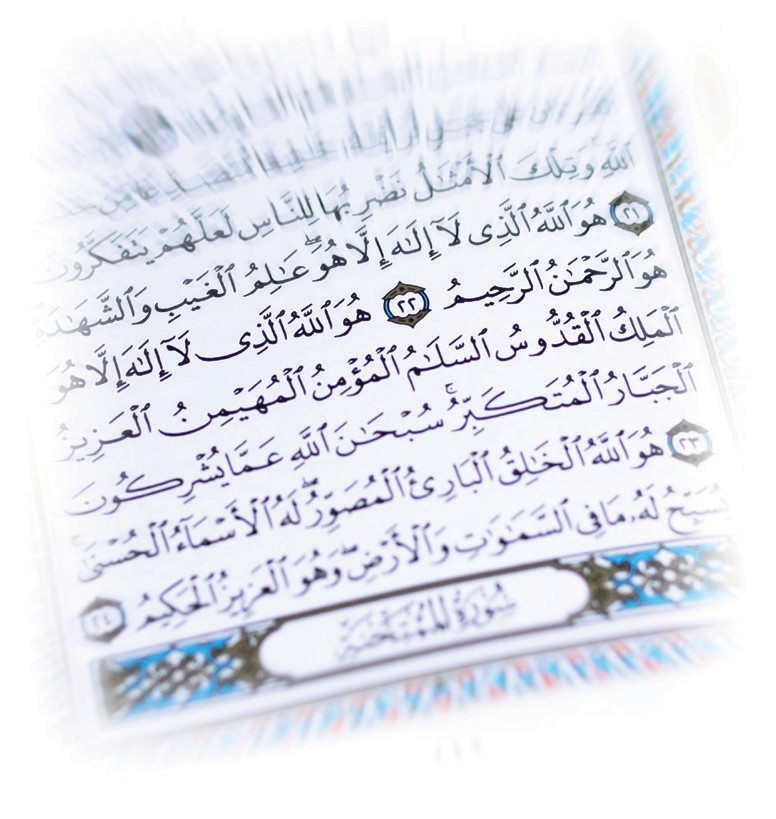 ٱللَّهِ ۚ وَتِلْكَ ٱلْأَمْثَٰلُ نَضْرِبُهَا لِلنَّاسِ لَعَلَّهُمْ يَتَفَكَّرُونَ
٢١ هُوَ ٱللَّهُ ٱلَّذِى لَآ إِلَٰهَ إِلَّا هُوَ ۖ عَٰلِمُ ٱلْغَيْبِ وَٱلشَّهَٰدَةِ
هُوَ ٱلرَّحْمَٰنُ ٱلرَّحِيمُ ٢٢ هُوَ ٱللَّهُ ٱلَّذِى لَآ إِلَٰهَ إِلَّا هُوَ
ٱلْمَلِكُ ٱلْقُدُّوسُ ٱلسَّلَٰمُ ٱلْمُؤْمِنُ ٱلْمُهَيْمِنُ ٱلْعَزِيزُ
ٱلْجَبَّارُ ٱلْمُتَكَبِّرُ ۚ سُبْحَٰنَ ٱللَّهِ عَمَّا يُشْرِكُونَ
٢٣ هُوَ ٱللَّهُ ٱلْخَٰلِقُ ٱلْبَارِئُ ٱلْمُصَوِّرُ ۖ لَهُ ٱلْأَسْمَآءُ ٱلْحُسْنَىٰ ۚ
يُسَبِّحُ لَهُۥ مَا فِى ٱلسَّمَٰوَٰتِ وَٱلْأَرْضِ ۖ وَهُوَ ٱلْعَزِيزُ ٱلْحَكِيمُ ٢٤
سُورَةُ ٱلْمُمْتَحَنَةِ